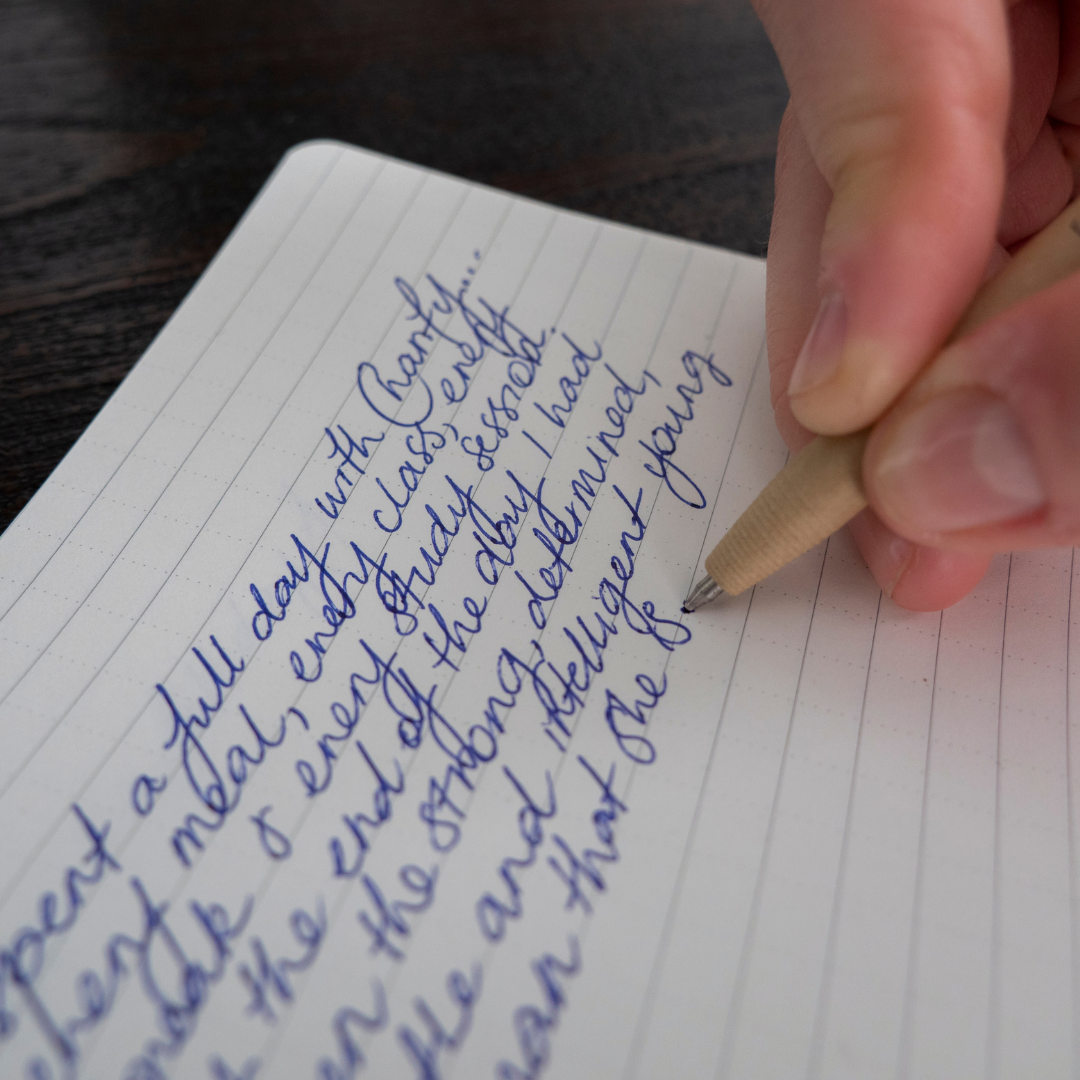 spent a full day with Charity...
meal, every class, every
study session.
the end of the day I had
the strong, determined,
the and intelligent young
that she is